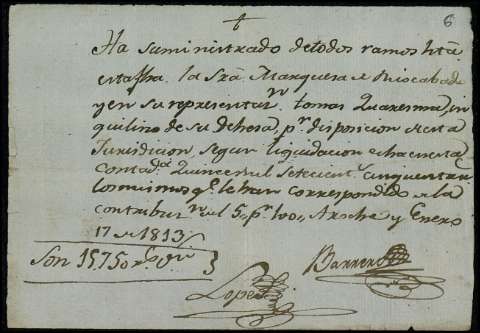 6
Ha suministrado de todos ramos hta
esta fha. la Sra. Marquesa de Riocabado
y en su representon. tomas Quaresma, in
quilino de su dehesa, pr. disposicion de esta
Jurisdicion, segun liquidacion echa en esta
Contada. Quince mil setecient. cinquenta rs.
los mismos qe. le han correspondido de la
contribun. del 5 pr. 100,, Aroche y Enero
17 de 1813,,
Son 15,750 rs. vn.
Lopez
Barrero